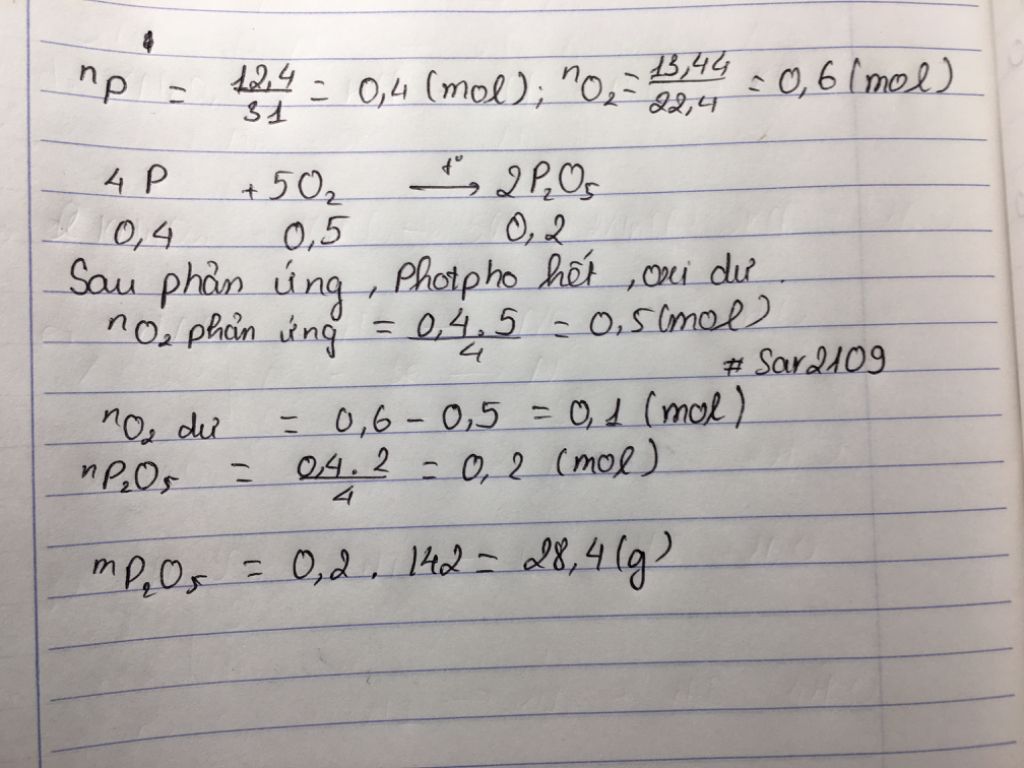 nP = 12,4/31 = 0,4 (mol); nO₂ = 13,44/22,4 = 0,6 (mol)
4P + 5O₂ —t°→ 2P₂O₅
0,4 0,5 0,2
Sau phản ứng, Photpho hết, oxi dư.
nO₂ phản ứng = 0,4.5/4 = 0,5 (mol)
# Sar2109
nO₂ dư = 0,6 - 0,5 = 0,1 (mol)
nP₂O₅ = 0,4.2/4 = 0,2 (mol)
mP₂O₅ = 0,2 . 142 = 28,4 (g)